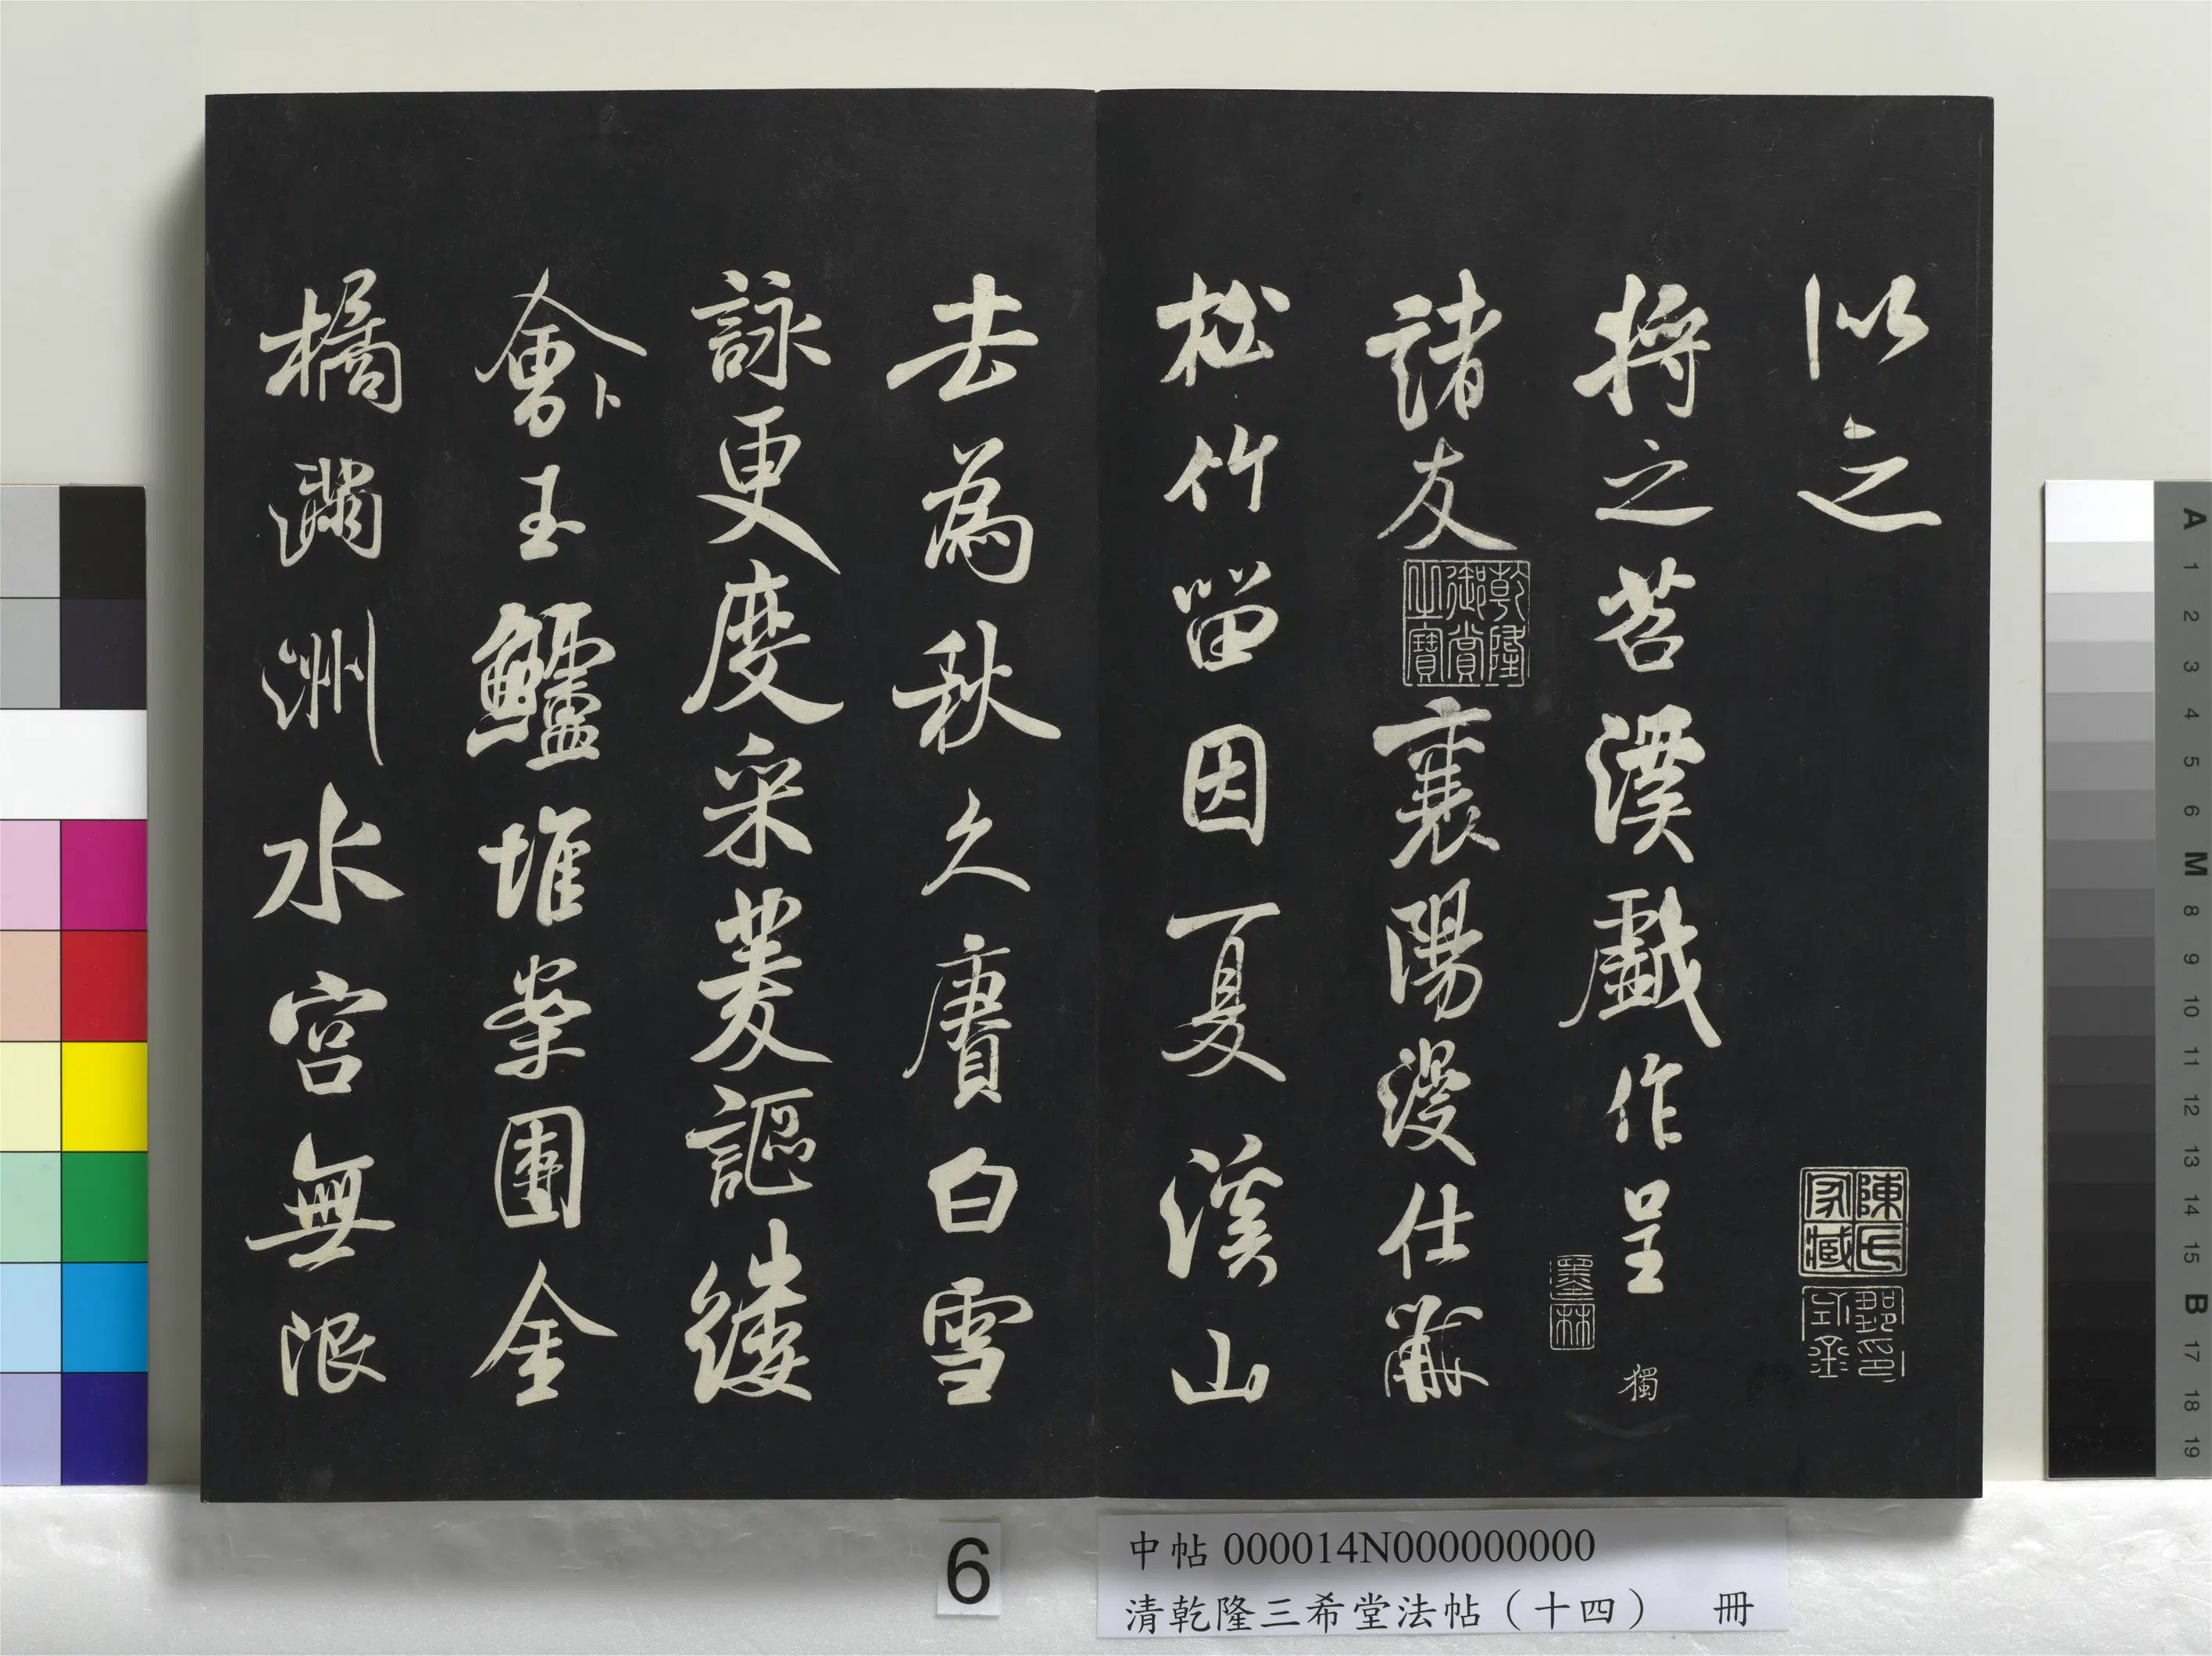 以之
陳氏家藏
將之苕溪戲作呈
獨
墨林
諸友 襄陽漫仕黻
乾隆御賞之寶
松竹留因夏溪山
去為秋久賡白雪
詠更度采菱謳縷
會卜玉鱸堆案團金
橘滿洲水宮無限
6
中帖 000014N000000000
清乾隆三希堂法帖（十四） 冊
A 1 2 3 4 5 6 M 8 9 10 11 12 13 14 15 B 17 18 19